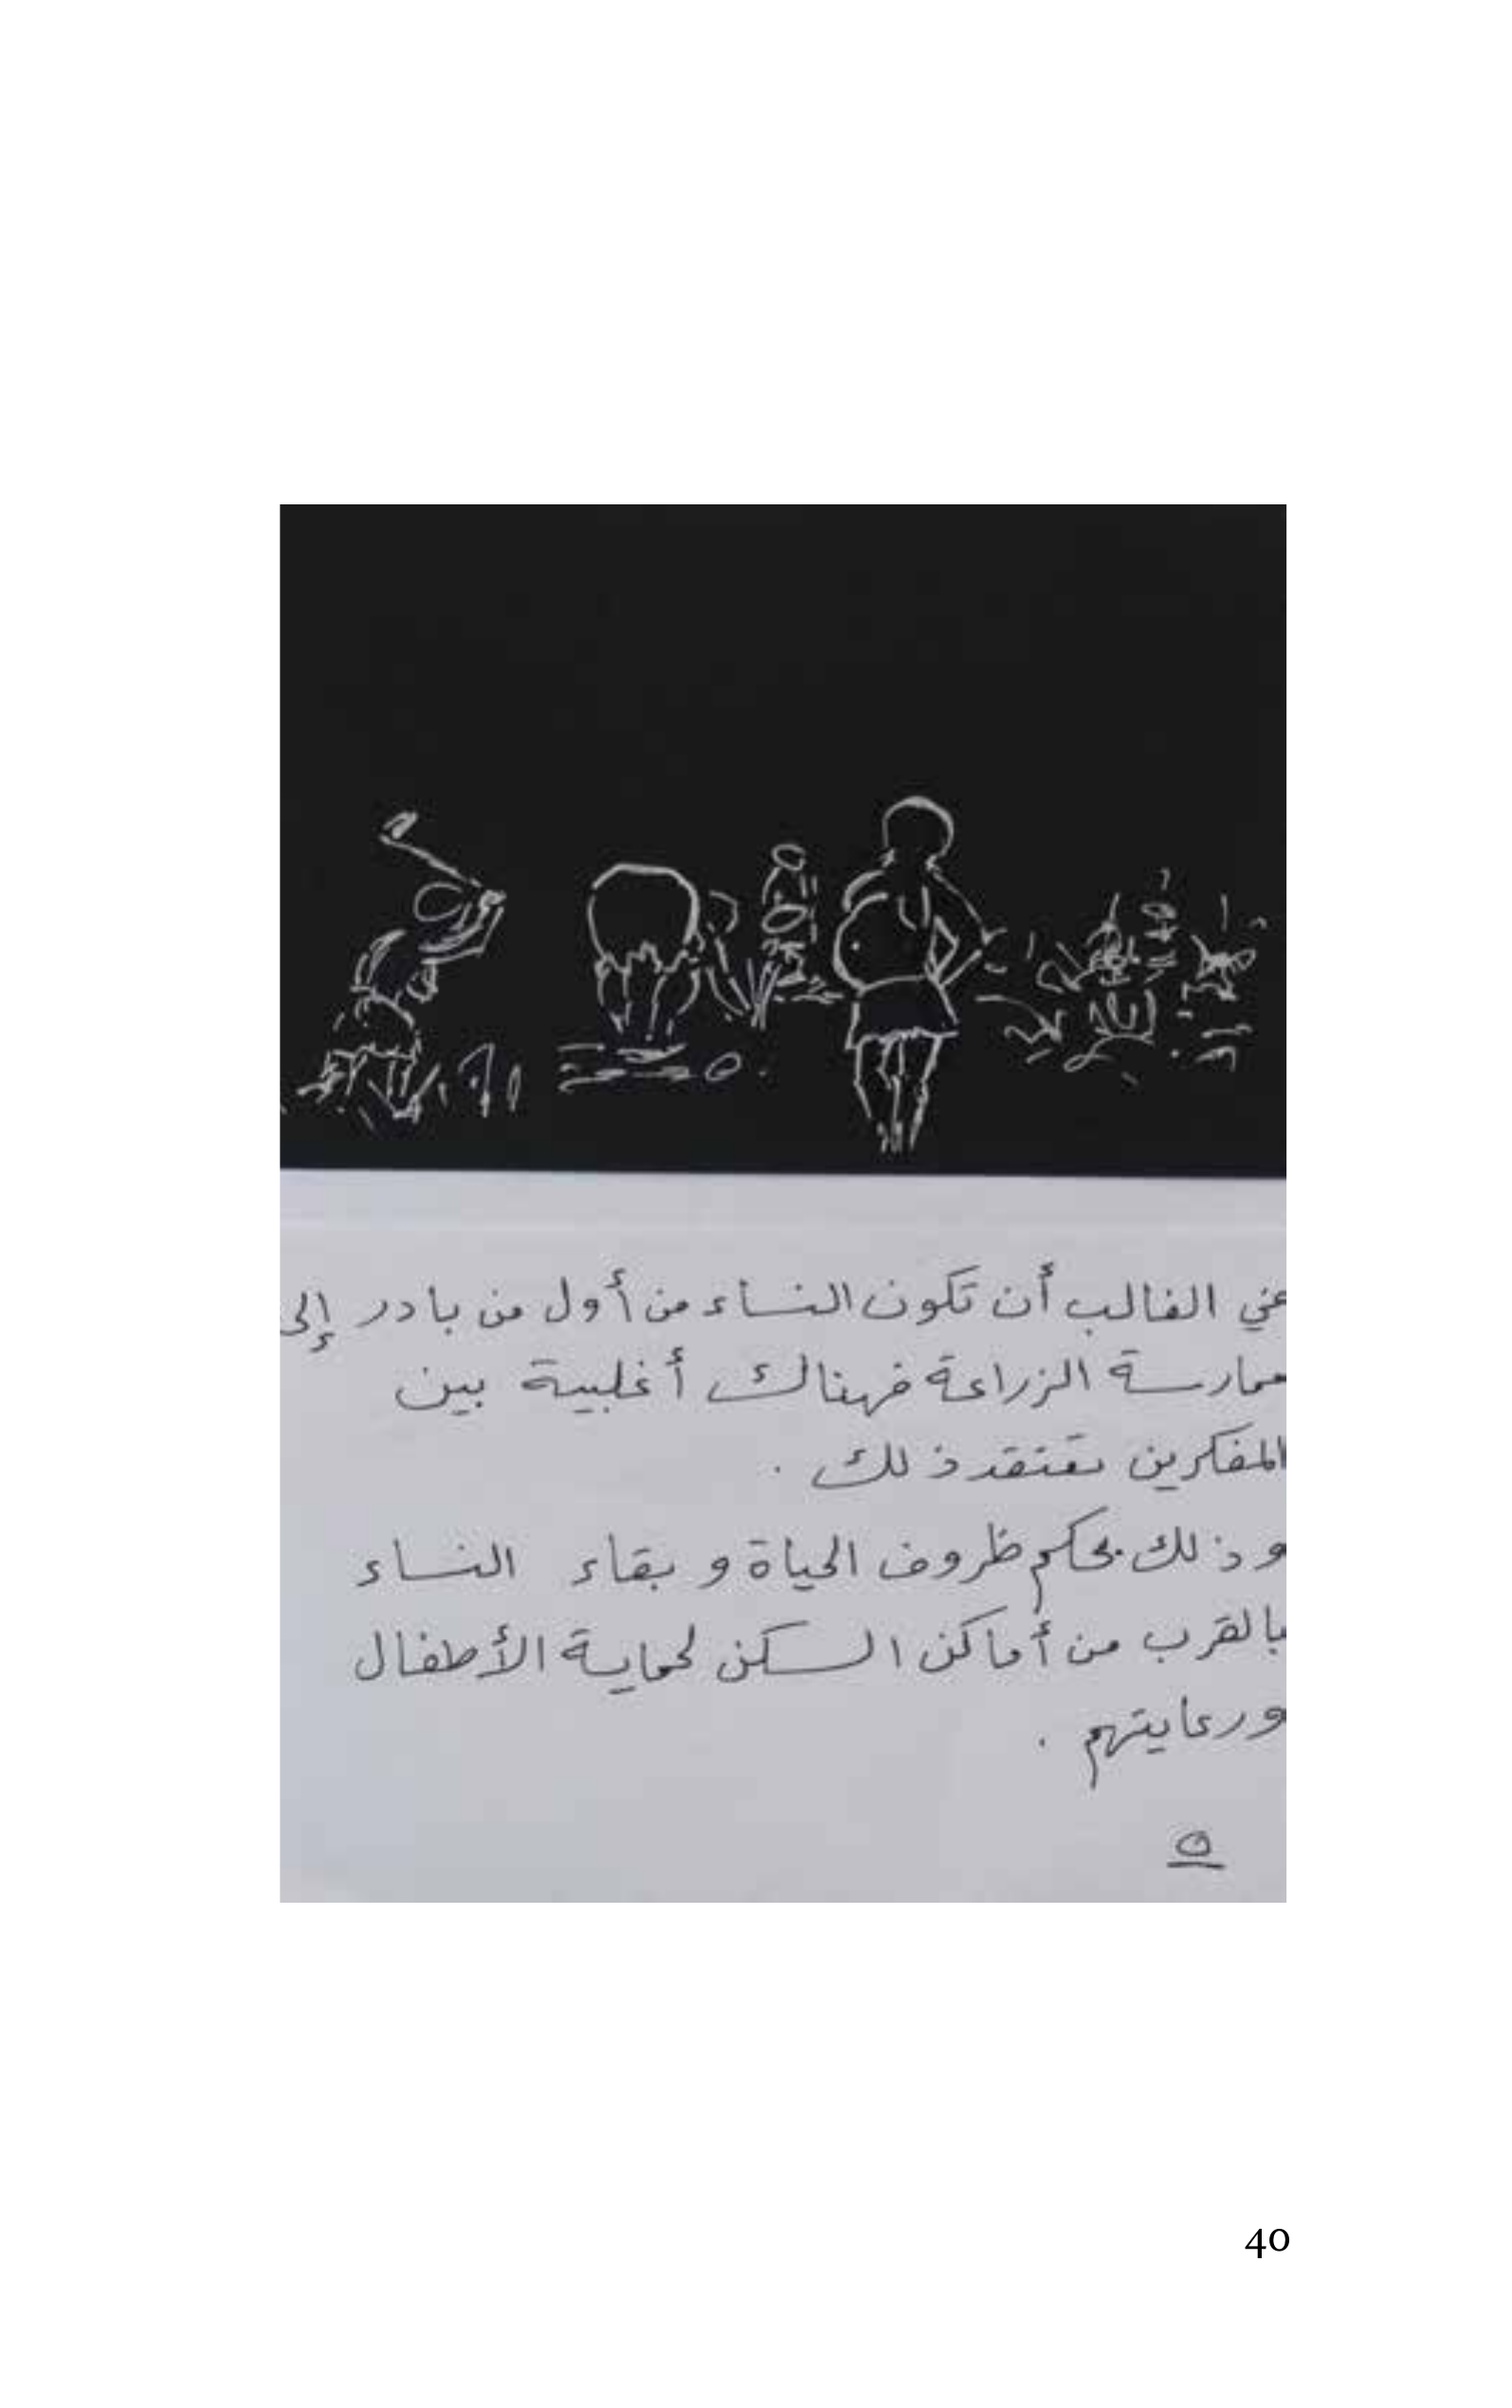 في الغالب أن تكون النساء من أول من بادر إلى
ممارسة الزراعة فهناك أغلبية بين
المفكرين تعتقد ذلك .
و ذلك بحكم ظروف الحياة و بقاء النساء
بالقرب من أماكن السكن لحماية الأطفال
ورعايتهم .
٥
40